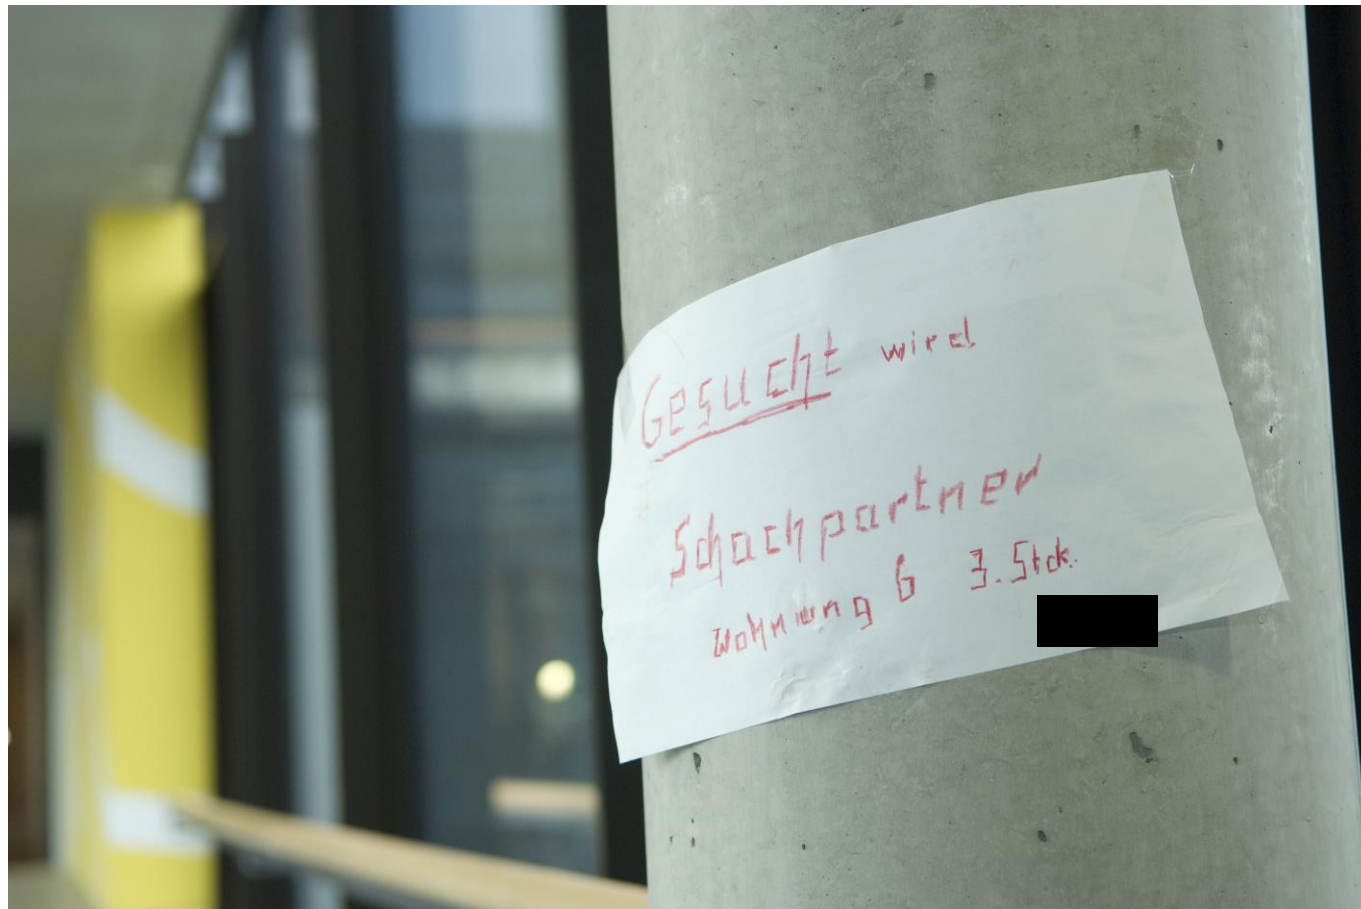 Gesucht wird
Schachpartner
Wohnung 6 3. Stck.